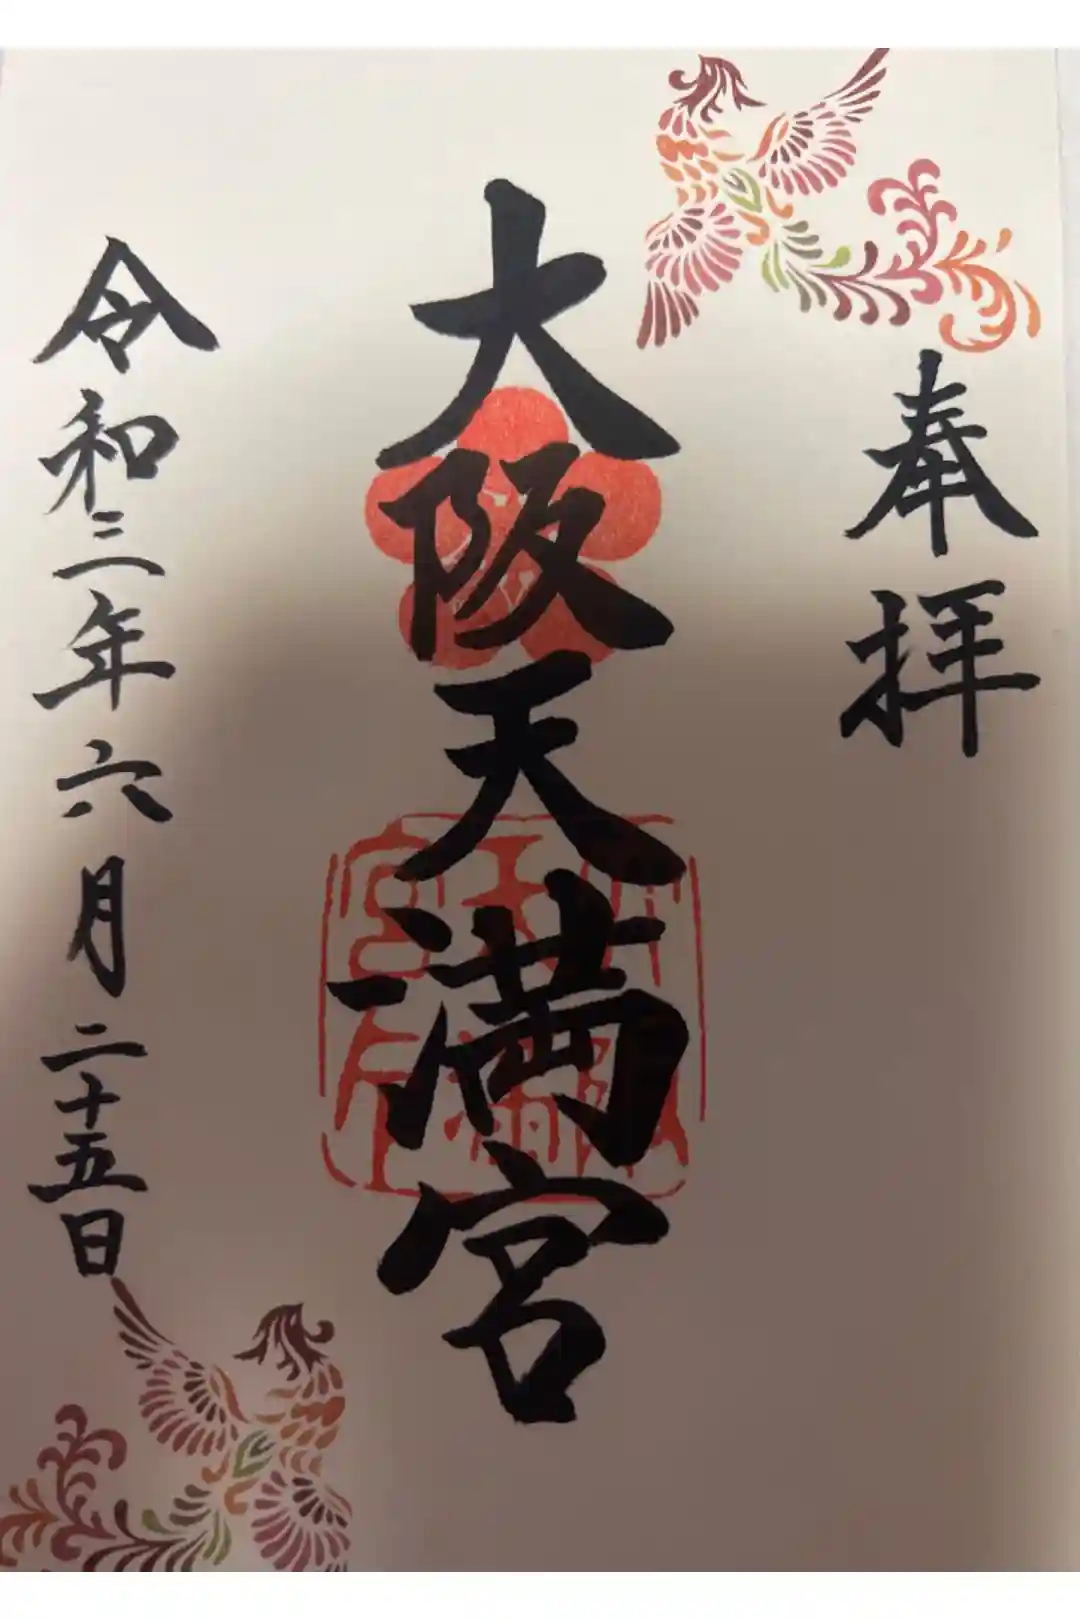 奉拝
大阪天満宮
令和三年六月二十五日